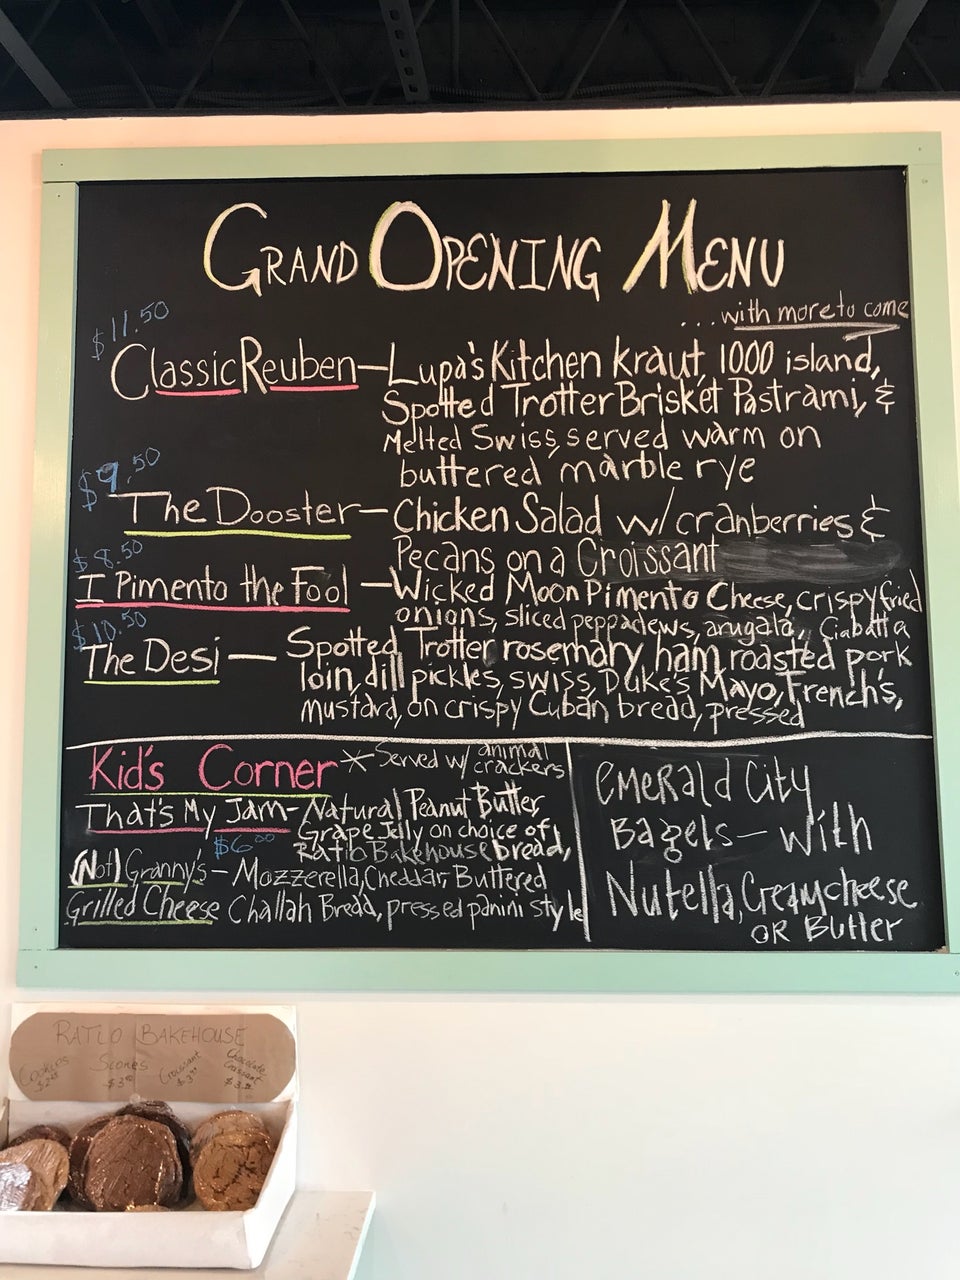 GRAND OPENING MENU
...with more to come
$11.50
Classic Reuben — Lupa's Kitchen kraut, 1000 island,
Spotted Trotter Brisket Pastrami, &
Melted Swiss, served warm on
buttered marble rye
$9.50
The Dooster — Chicken Salad w/ cranberries &
Pecans on a Croissant
$8.50
I Pimento the Fool — Wicked Moon Pimento Cheese, crispy fried
onions, sliced peppadews, arugala, Ciabatta
$10.50
The Desi — Spotted Trotter rosemary ham, roasted pork
loin, dill pickles, swiss, Duke's Mayo, French's,
mustard, on crispy Cuban bread, pressed
Kid's Corner * Served w/ animal
crackers
That's My Jam - Natural Peanut Butter,
Grape Jelly on choice of
$6.00 Ratio Bakehouse bread,
(Not) Granny's - Mozzerella, Cheddar, Buttered
Grilled Cheese Challah Bread, pressed panini style
Emerald City
Bagels — with
Nutella, Creamcheese
OR Butter
RATIO BAKEHOUSE
Cookies Scones Croissant Chocolate
Croissant